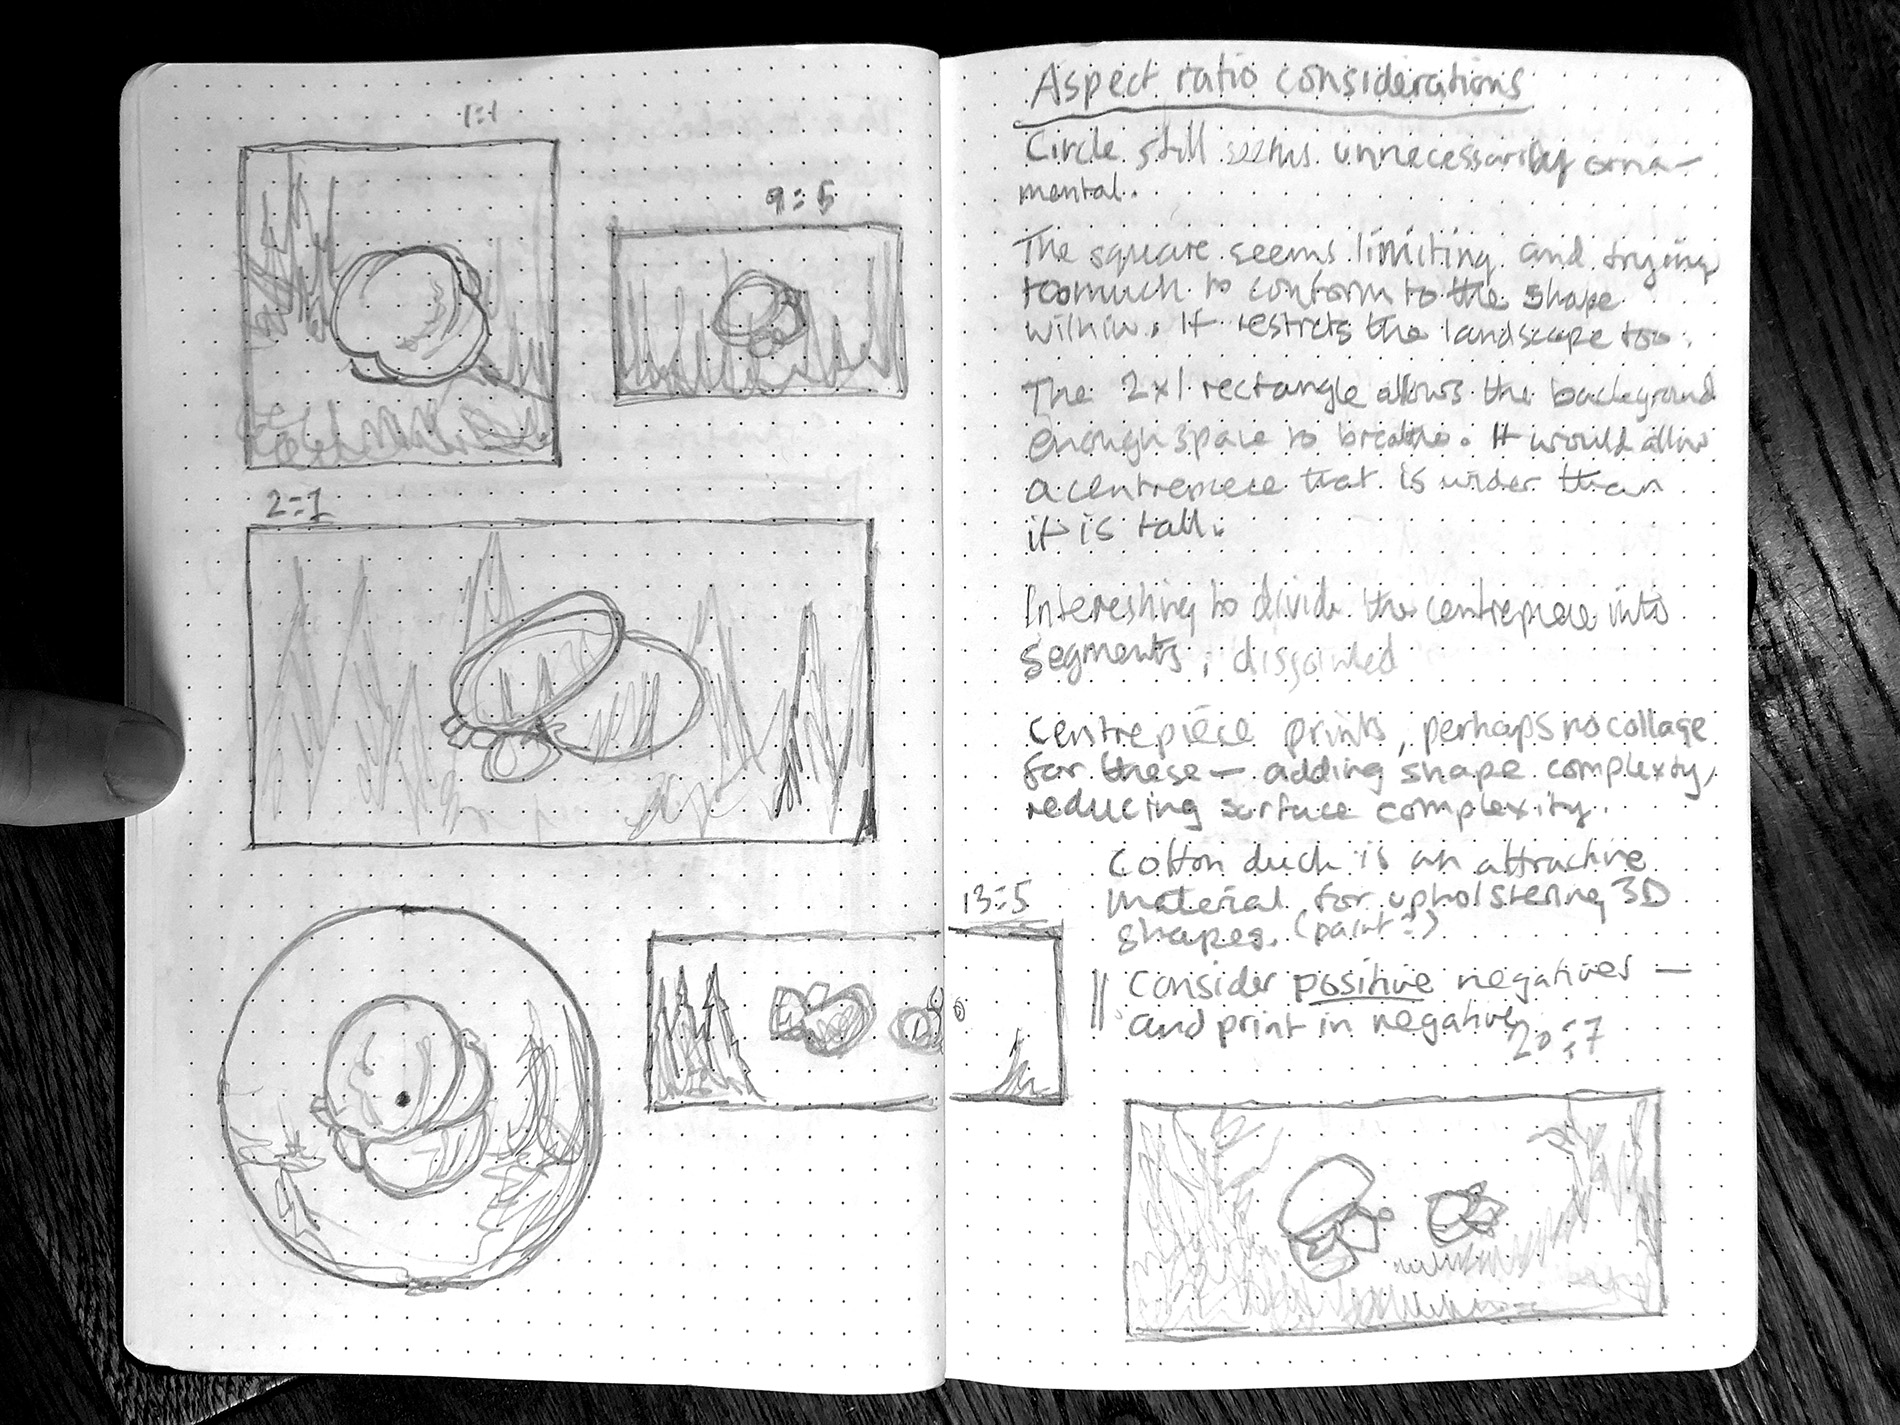 1:1
9:5
2:1
13:5
Aspect ratio considerations
Circle still seems unnecessarily orna-
mental.
The square seems limiting and trying
too much to conform to the shape
within. It restricts the landscape too.
The 2x1 rectangle allows the background
enough space to breathe. It would allow
a centrepiece that is wider than
it is tall.
Interesting to divide the centrepiece into
segments, disjointed
Centrepiece prints, perhaps no collage
for these – adding shape complexity,
reducing surface complexity.
Cotton duck is an attractive
material for upholstering 3D
shapes. (paint?)
Consider positive negatives –
and print in negative
20:7